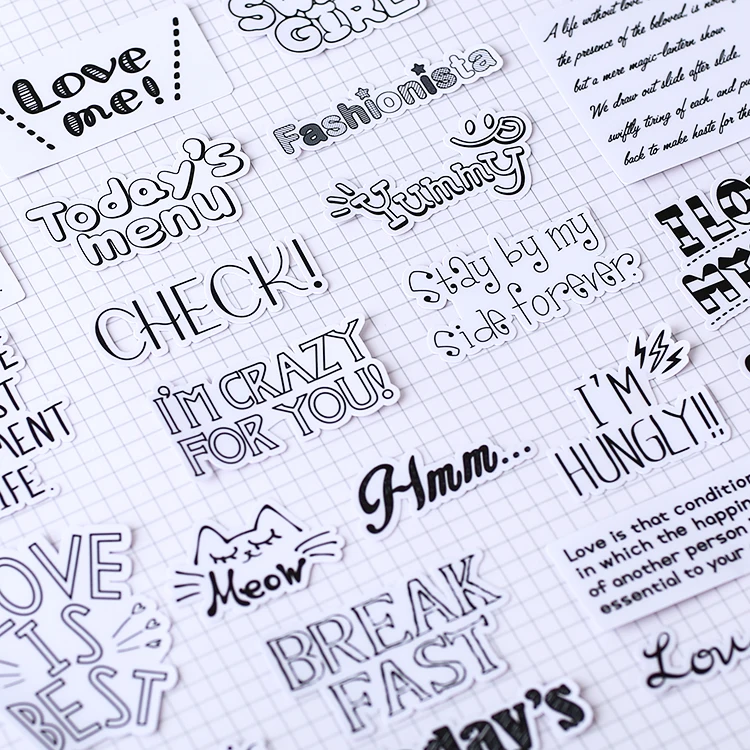 GIRL
Love
me!
Fashionista
A life without love,
the presence of the beloved, is
but a mere magic-lantern show.
We draw out slide after slide,
swiftly tiring of each, and
back to make haste for
Today's
menu
Yummy
I
CHECK!
Stay by my
Side forever.
I'M CRAZY
FOR YOU!
I'M
HUNGLY!!
Hmm...
Meow
Love is that condition
in which the
of another person
essential to your
IS
BEST
BREAK
FAST